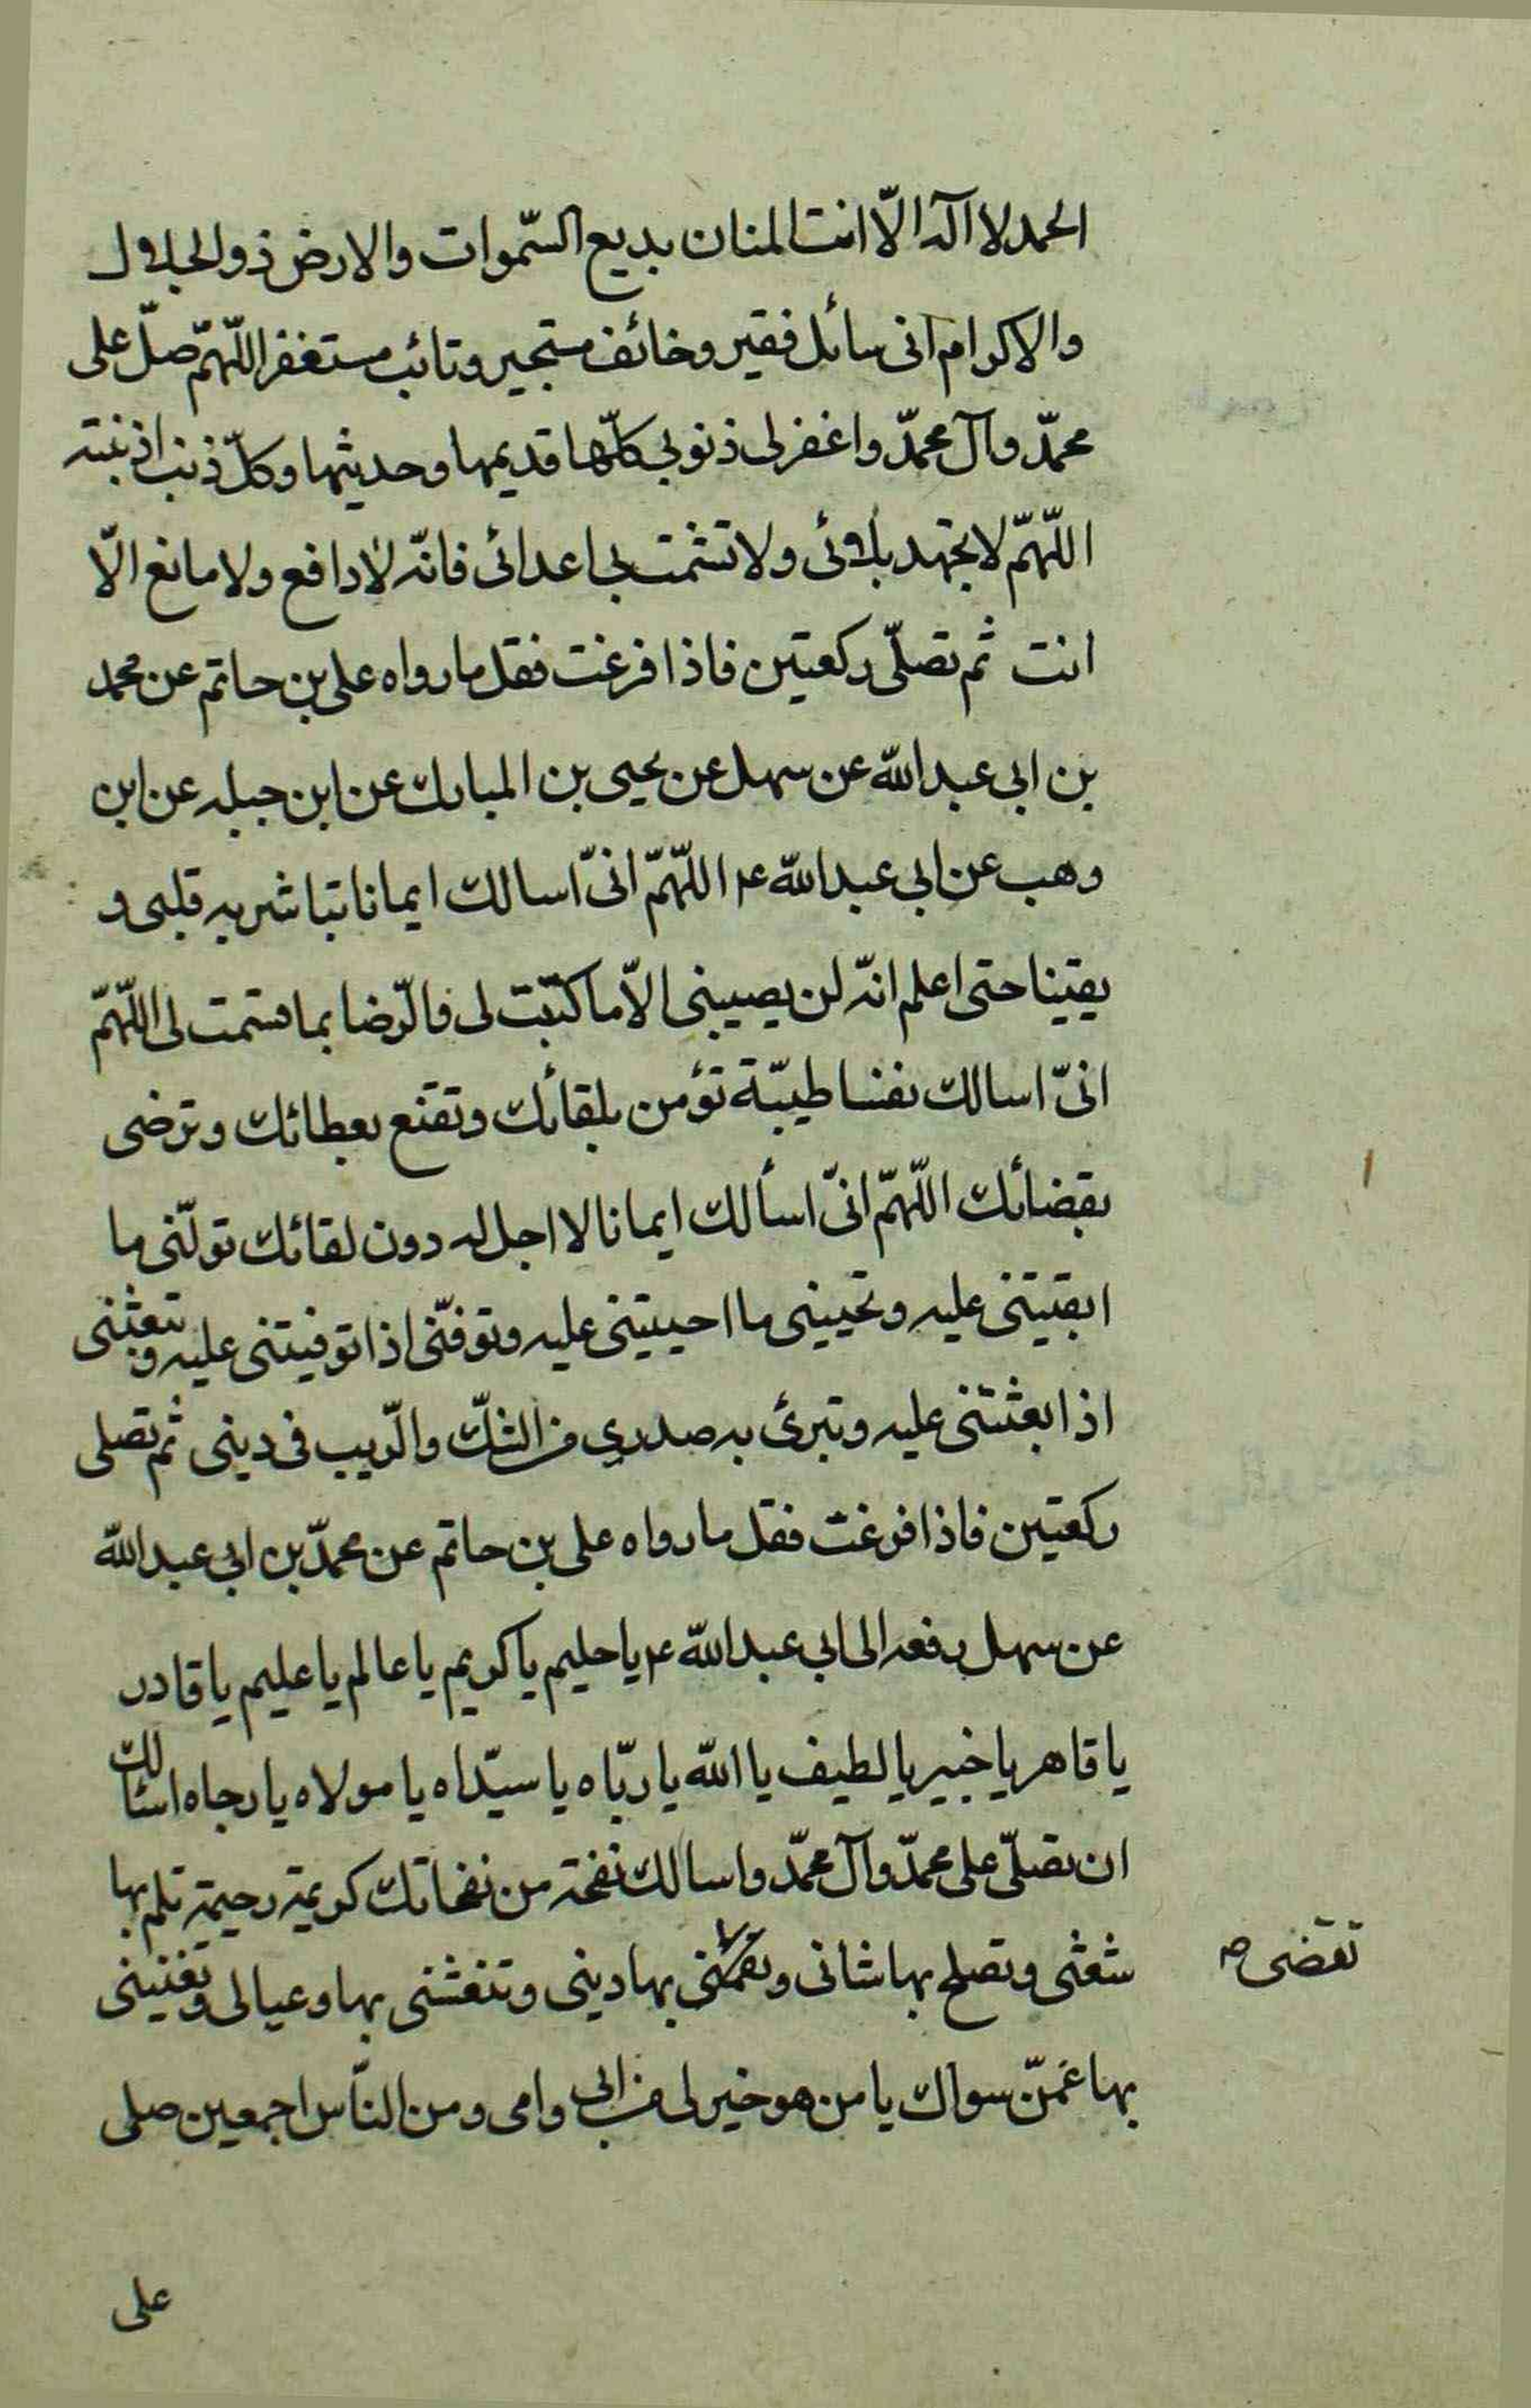 الحمد لا اله الّا انت المنان بديع السّموات والارض ذو الجلال
والاكرام انى سائل فقير وخائف مستجير وتائب مستغفر اللّهمّ صلّ على
محمّد وآل محمّد واغفر لى ذنوبى كلّها قديمها وحديثها وكلّ ذنب اذنبته
اللّهمّ لا تجهد بلائى ولا تشمت بى اعدائى فانّه لا دافع ولا مانع الّا
انت ثم تصلّى ركعتين فاذا فرغت فقل ما رواه على بن حاتم عن محمد
بن ابى عبد الله عن سهل عن يحيى بن المبارك عن ابن جبله عن ابن
وهب عن ابى عبد الله ع اللّهمّ انىّ اسالك ايمانا تباشر به قلبى و
يقينا حتى اعلم انّه لن يصيبنى الّا ما كتبت لى فالرّضا بما قسمت لى اللّهمّ
انىّ اسالك نفسا طيبّة تؤمن بلقائك وتقنع بعطائك وترضى
بقضائك اللّهمّ انىّ اسألك ايمانا لا اجل له دون لقائك تولّنى ما
ابقيتنى عليه وتحيينى ما احييتنى عليه وتوفّنى اذا توفيتنى عليه وتبعثنى
اذا بعثتنى عليه وتبرئ به صدرى من الشكّ والرّيب فى دينى ثم تصلى
ركعتين فاذا فرغت فقل ما رواه على بن حاتم عن محمّد بن ابى عبد الله
عن سهل رفعه الى ابى عبد الله ع يا حليم يا كريم يا عالم يا عليم يا قادر
يا قاهر يا خبير يا لطيف يا الله يا ربّاه يا سيّداه يا مولاه يا رجاه اسئالك
ان تصلّى على محمّد وآل محمّد واسالك نفحة من نفحاتك كريمة رحيمة تلم بها
شعثى وتصلح بها شانى و بها دينى وتنعشنى بها وعيالى وتغنينى
تقضى ص
بها عمّن سواك يا من هو خير لى من ابى وامى ومن النّاس اجمعين صلى
على